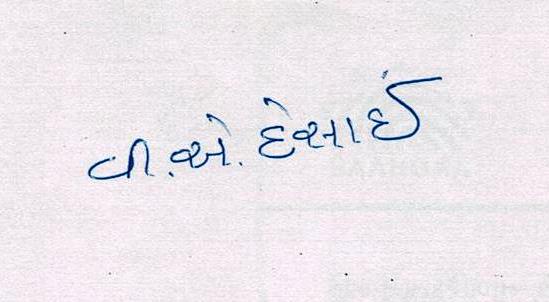 વી.એ. દેસાઈ